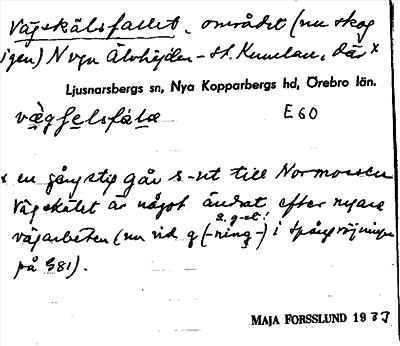 Vägskälsfallet, området (nu skog
igen) N vgn Älvhöjden - St. Kumlan, där x
Ljusnarsbergs sn, Nya Kopparbergs hd, Örebro län.
vægʃelsfala E 60
x en gångstig går s-ut till Normossen
Vägskälet är något ändrat efter nyare
2. g-et!
vägarbeten (nu vid g (-ning-) i
på §81).
MAJA FORSSLUND 19